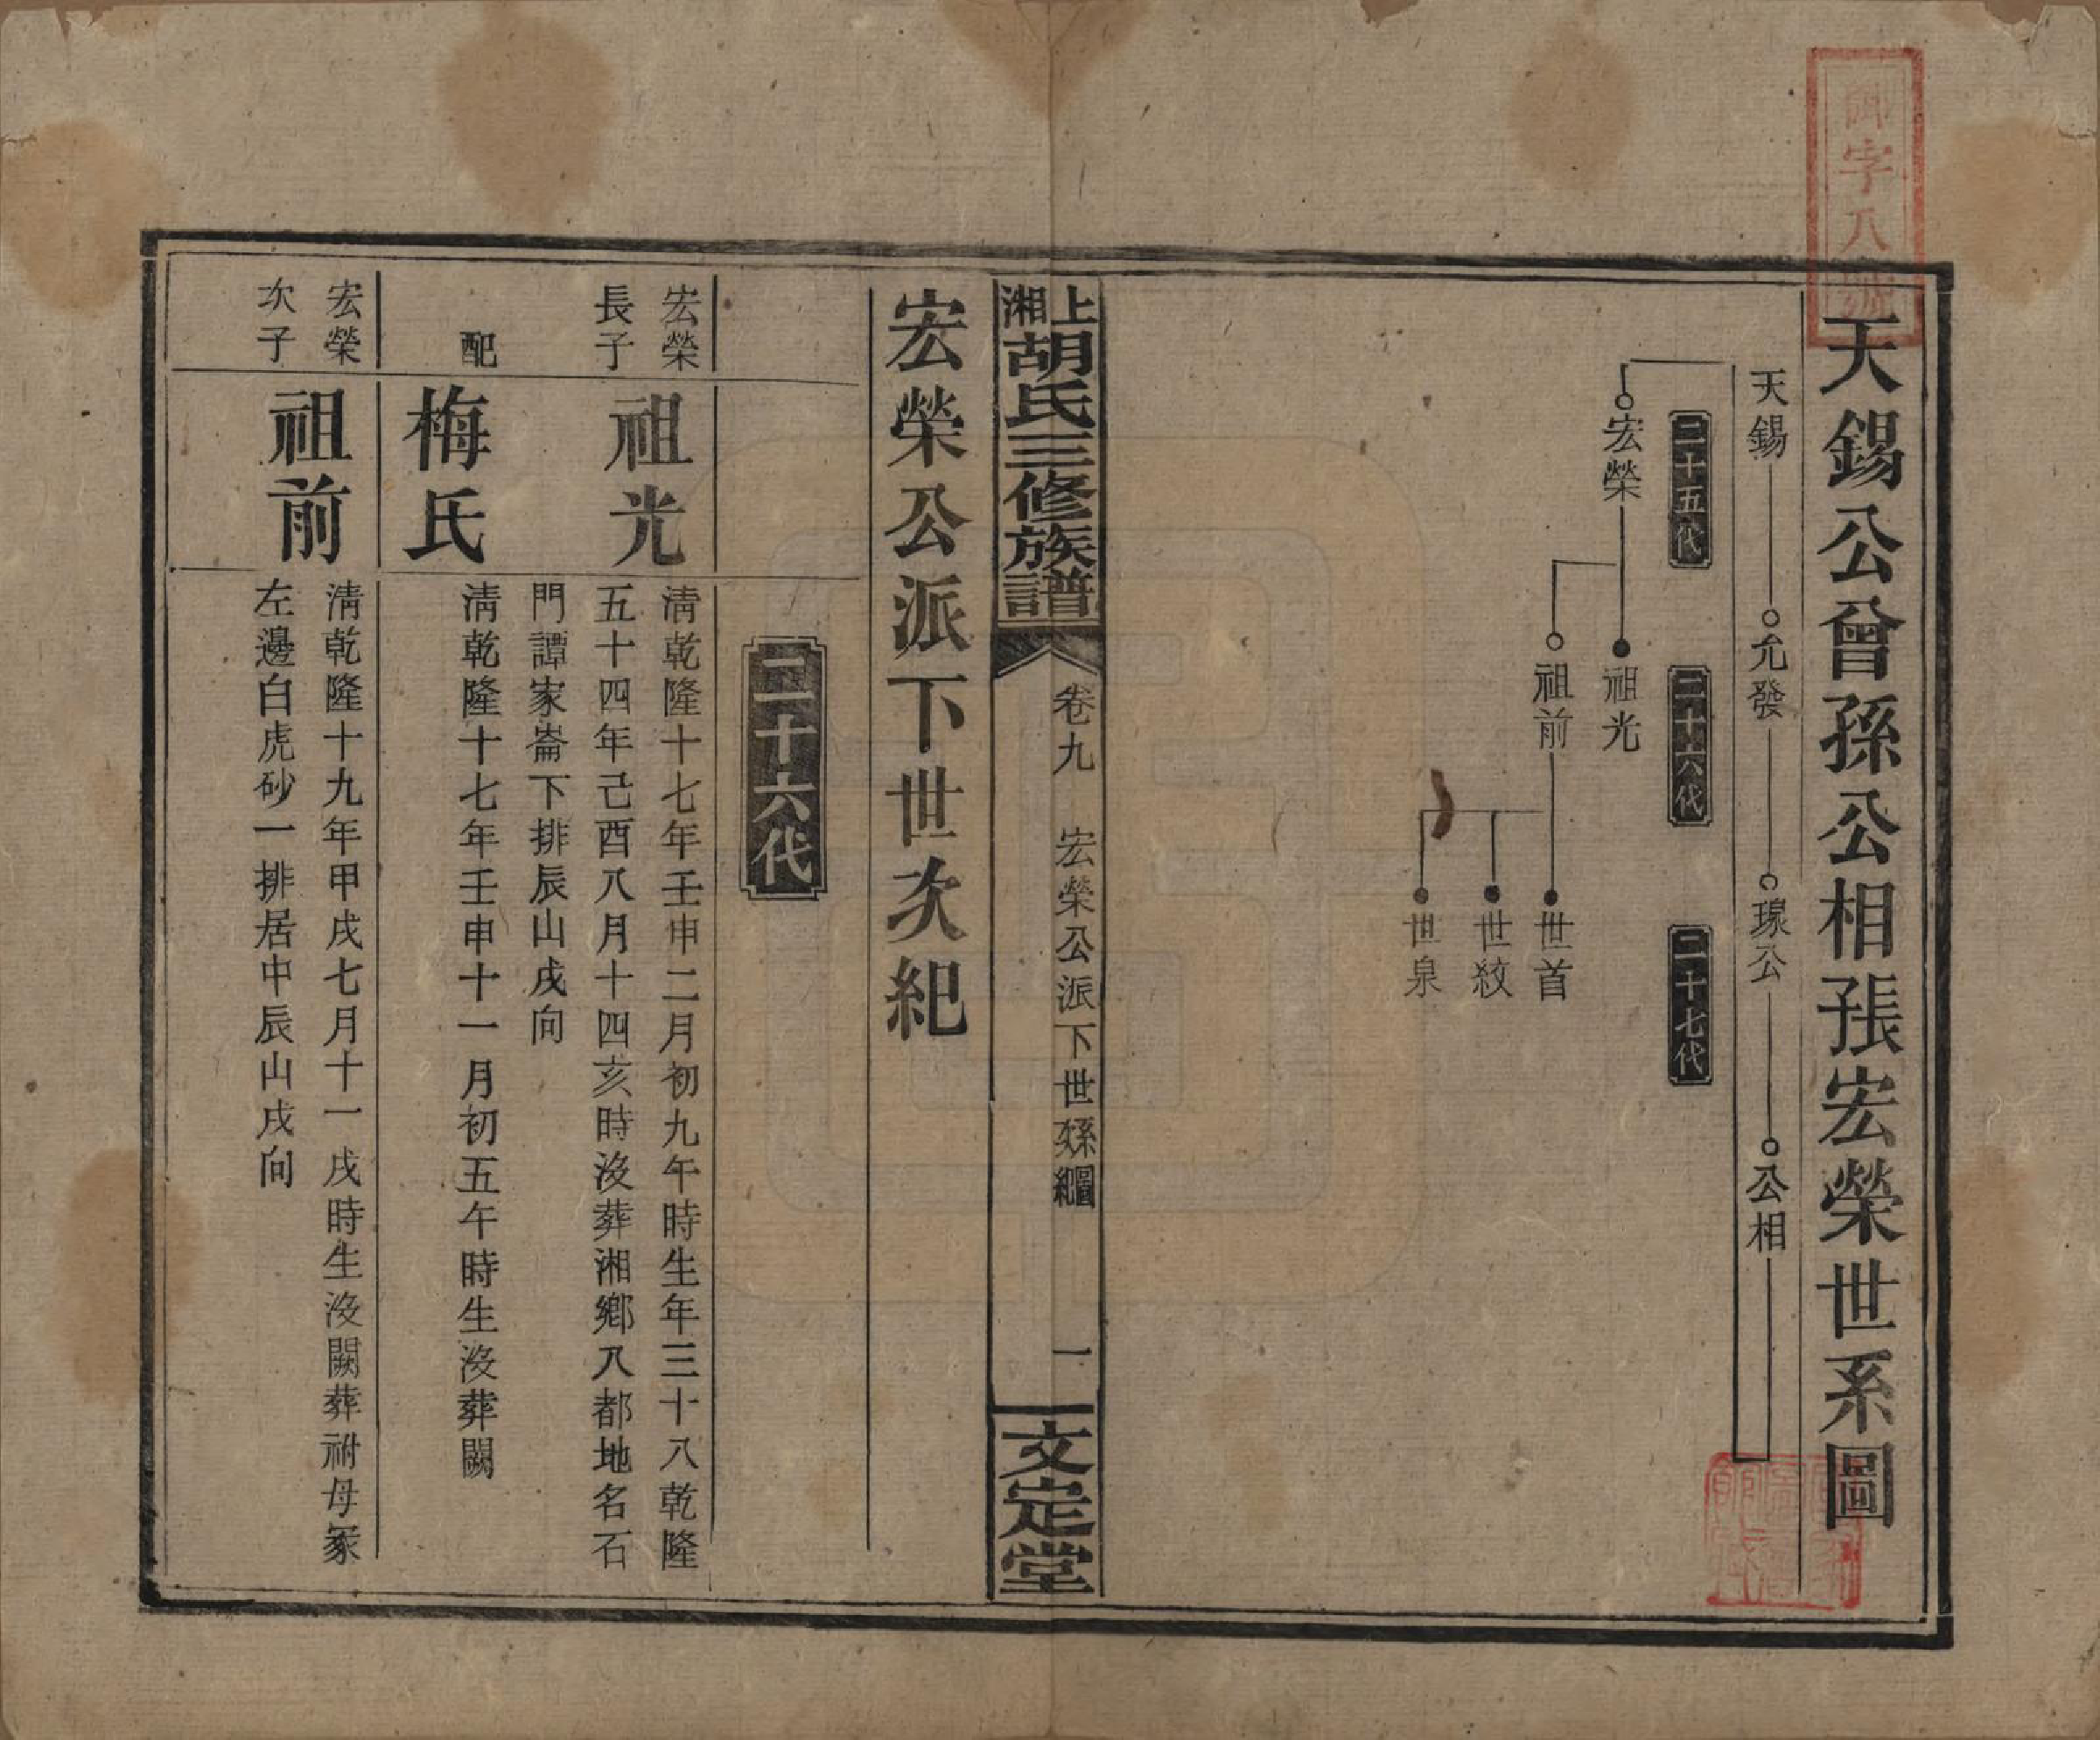 天錫公曾孫公相房宏榮世系圖
天錫
允發
璟公
公相
二十五代
二十六代
二十七代
宏榮
祖光
祖前
世首
世紋
世泉
上湘胡氏三修族譜
卷九 宏榮公派下世系圖紀
一
文定堂
宏榮公派下世次紀
二十六代
宏榮長子
祖光
清乾隆十七年壬申二月初九午時生年三十八乾隆
五十四年己酉八月十四亥時沒葬湘鄉八都地名石
門譚家崙下排辰山戌向
配
梅氏
清乾隆十七年壬申十一月初五午時生沒葬闕
宏榮次子
祖前
清乾隆十九年甲戌七月十一戌時生沒闕葬祔母冢
左邊白虎砂一排居中辰山戌向
字八號